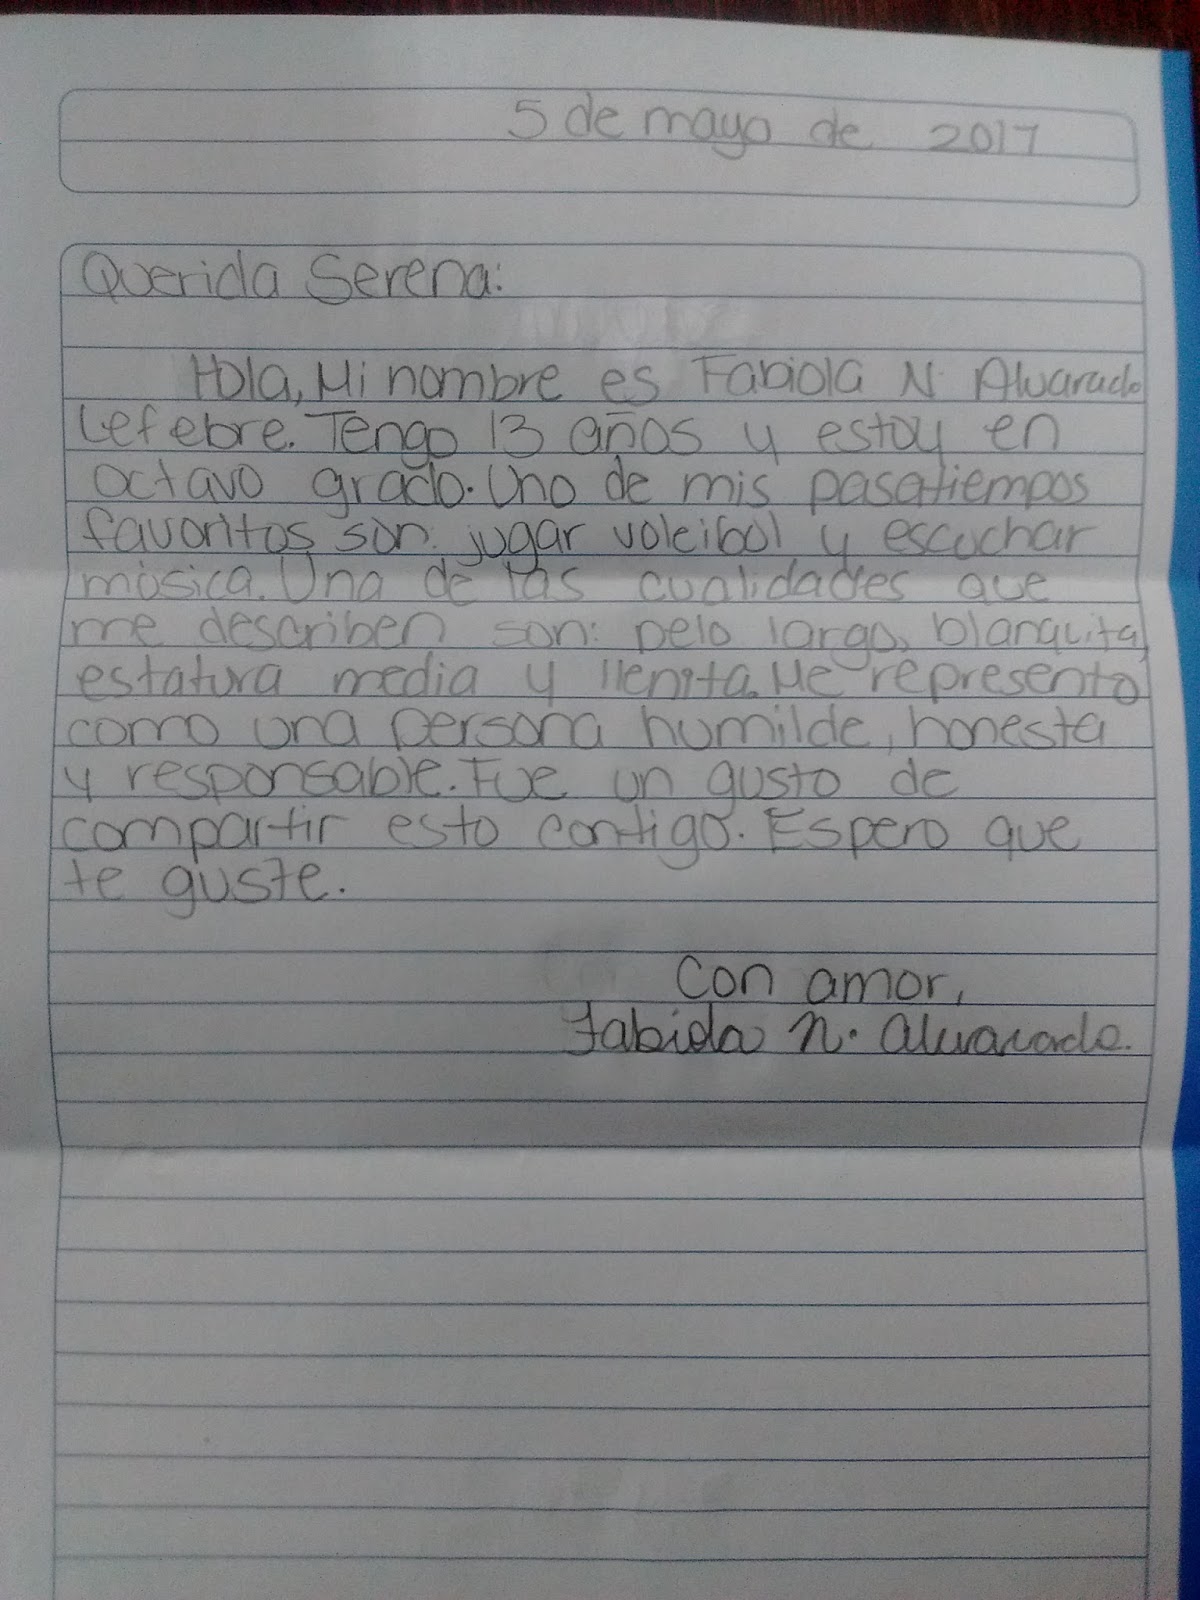 5 de mayo de 2017
Querida Serena:
Hola, Mi nombre es Fabiola N. Alvarado
Lefebre. Tengo 13 años y estoy en
octavo grado. Uno de mis pasatiempos
favoritos son: jugar voleibol y escuchar
música. Una de las cualidades que
me describen son: pelo largo, blanquita,
estatura media y llenita. Me represento
como una persona humilde, honesta
y responsable. Fue un gusto de
compartir esto contigo. Espero que
te guste.
Con amor,
Fabiola N. Alvarado.